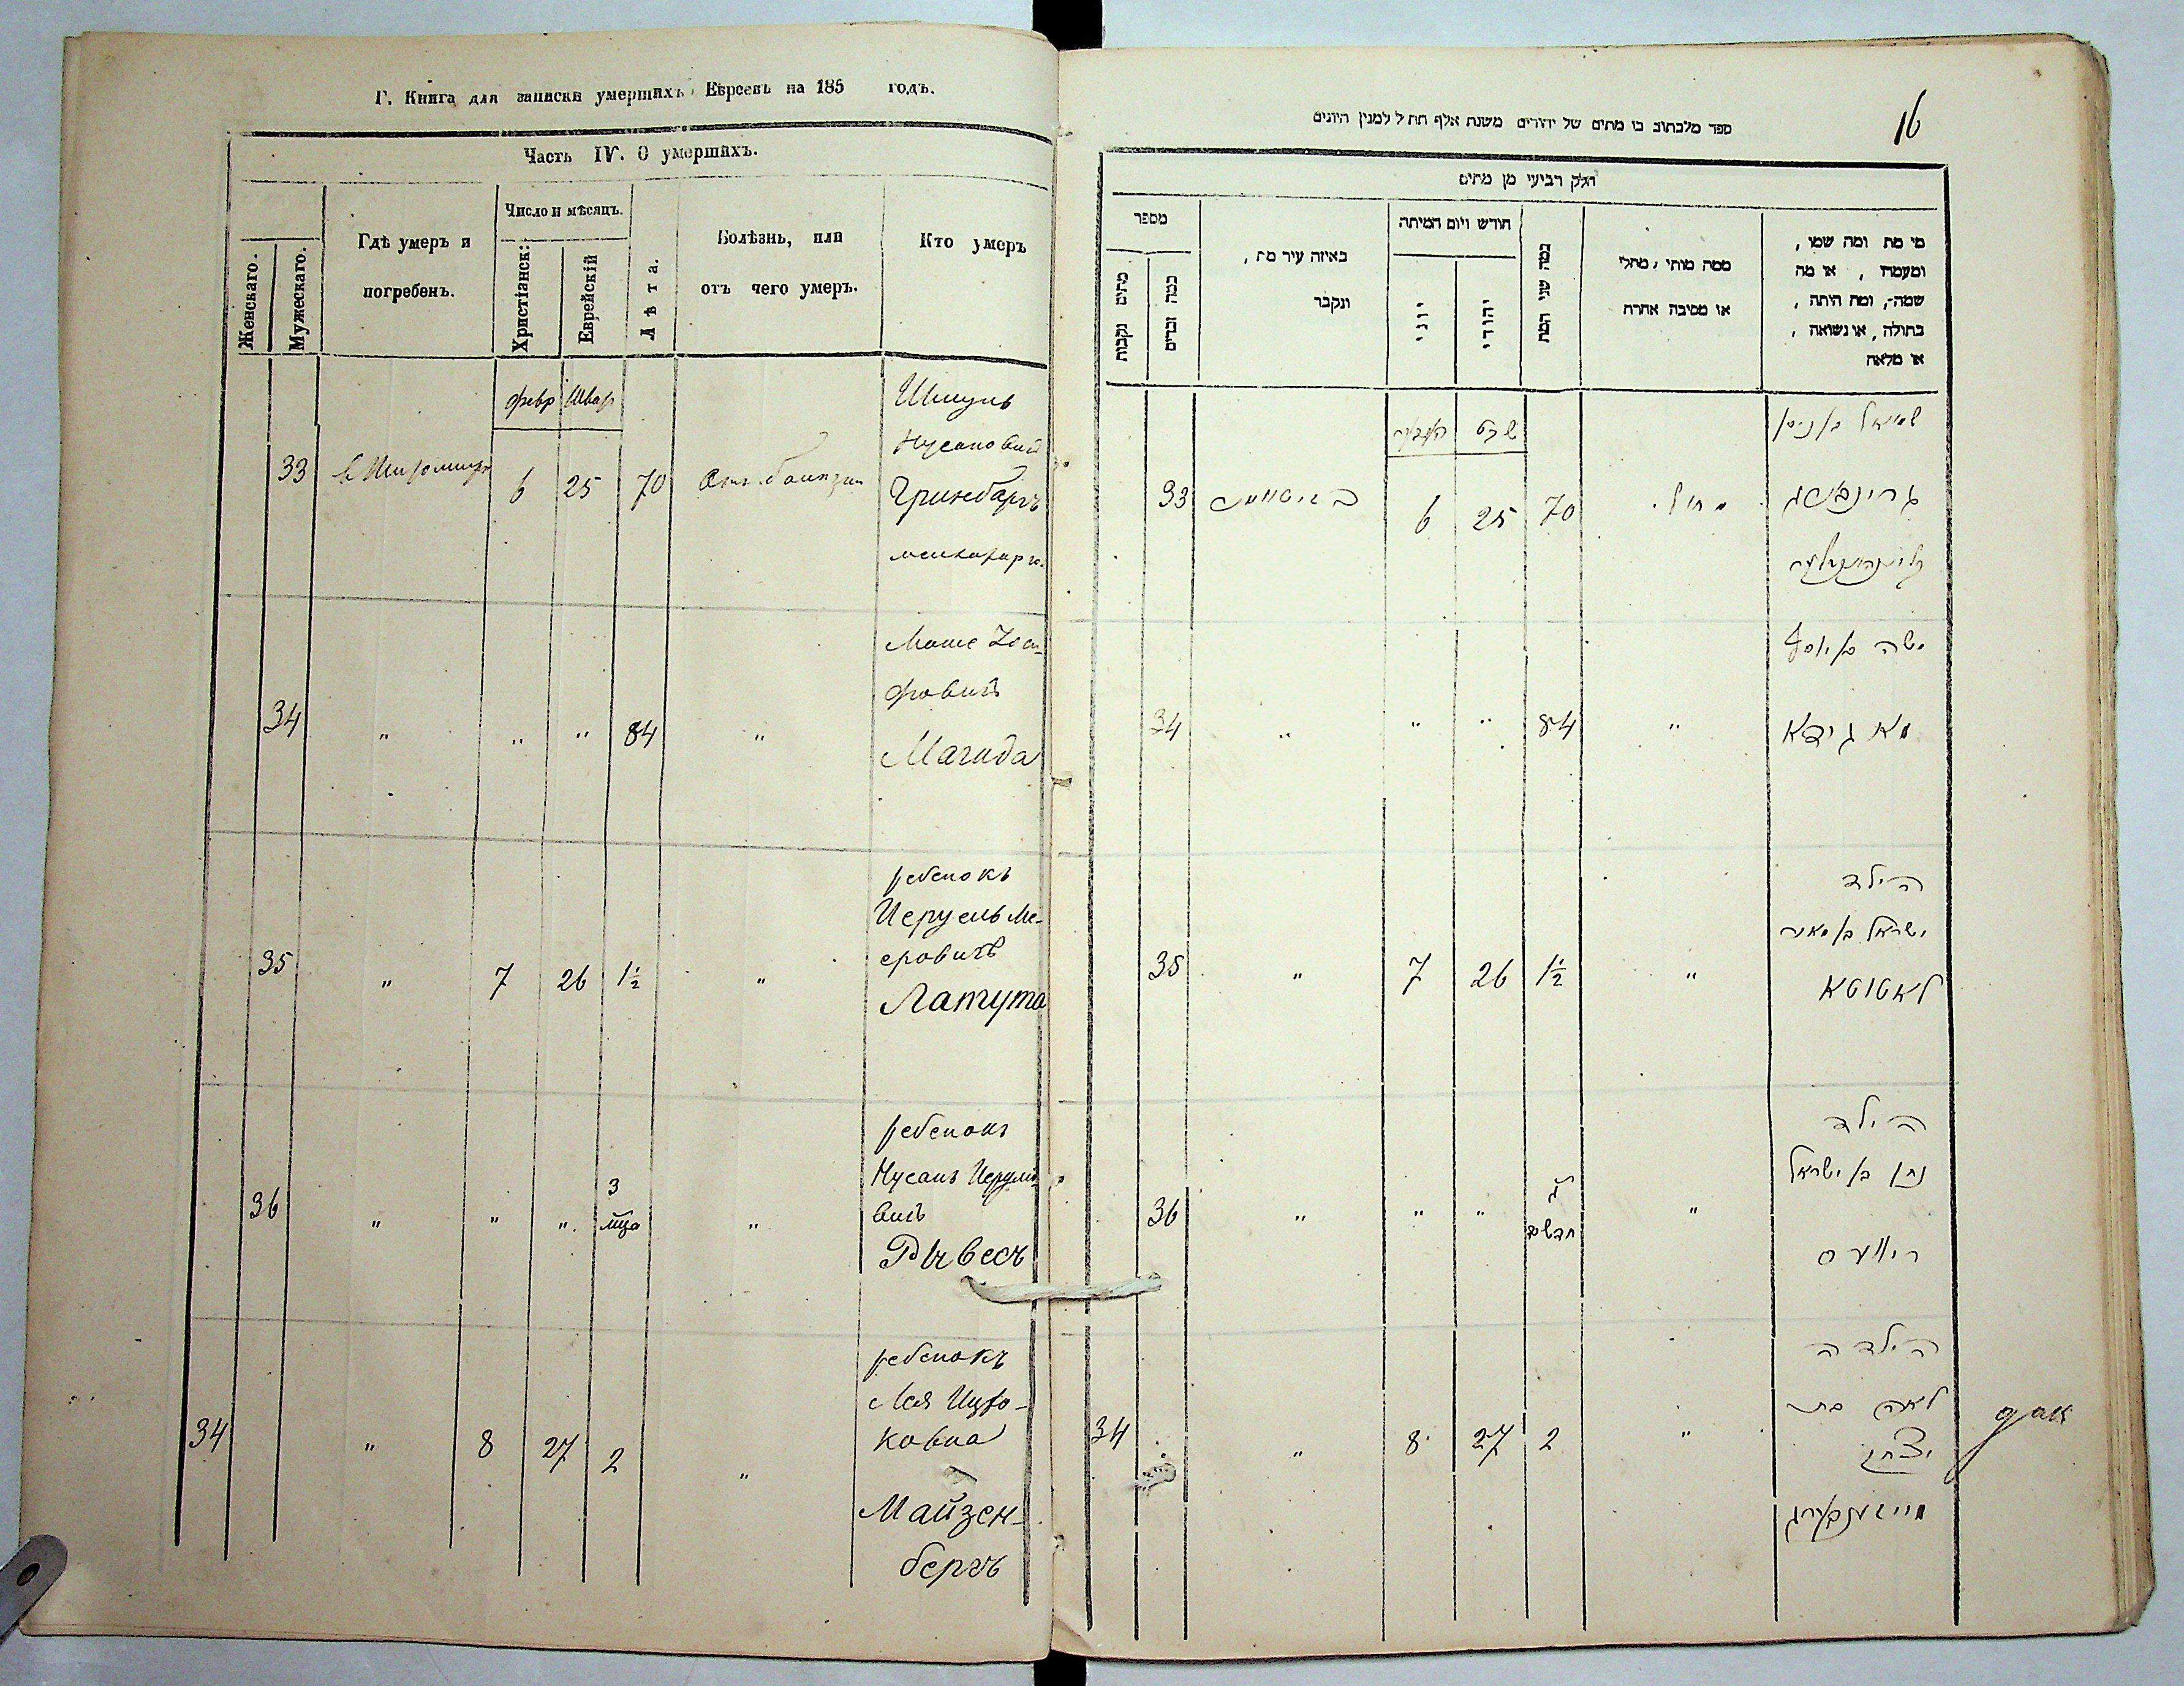 Г. Книга для записки умершихъ Евреевъ на 185 годъ.
Часть IV. О умершихъ.
Женскаго.
Мужескаго.
Гдѣ умеръ и
погребенъ.
Число и мѣсяцъ.
Христіанск:
Еврейскій
Лѣта.
Болѣзнь, или
отъ чего умеръ.
Кто умеръ
февр Шват
33 6 25 70
Гринбаргъ
34 " " " 84 "
Моше Іос-
фовичъ
Магида
35 " 7 26 1½ "
ребенокъ
Иеруель Ме-
еровичъ
Латута
36 " " " 3 "
ребенокъ
Нусанъ
вичъ
Рывесъ
34 " 8 27 2 "
ребенокъ
Лея Ицко-
ковна
Майзен-
бергъ
16
ספר מלכתוב בו מתים של יהודים משנת אלף תת ל למנין היונים
חלק רביעי מן מתים
מספר
מתים נקבות
כמה זכרים
באיזה עיר מת,
ונקבר
חודש ויום המיתה
יוני
יהודי
כמה שני המת
ממה מותי, מחלי
או מסיבה אחרת
מי מת ומה שמו,
ומעמדו, או מה
שמה, ומה היתה,
בתולה, או נשואה,
או מלאה
שבט
33 6 25 70
גרינבערג
34 " " " 84 "
משה בן יוסף
מאגידא
35 " 7 26 1½ "
הילד
ישראל בן מאיר
לאטוטא
36 " " " ג' חדשים "
הילד
נתן בן ישראל
ריוועס
34 " 8 27 2 "
הילדה
לאה בת
יצחק
מייזענבערג